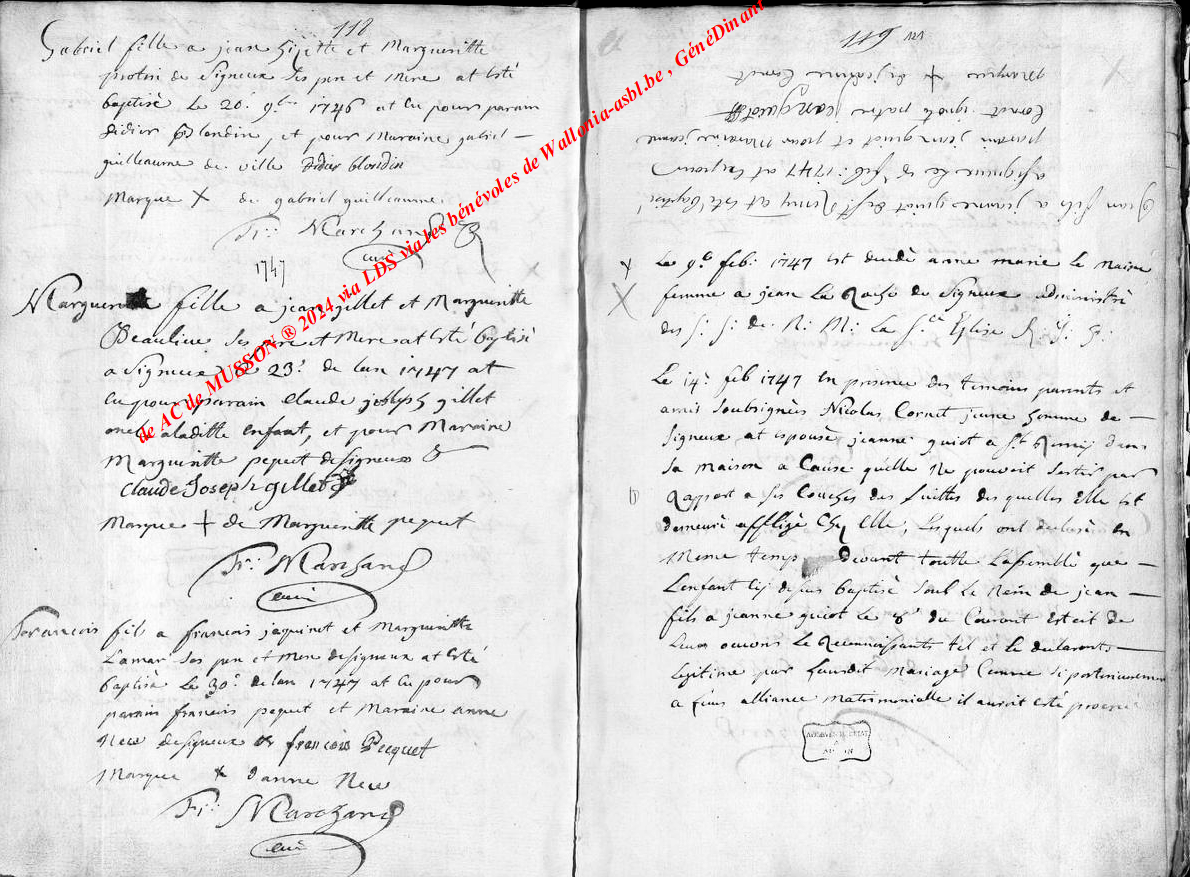 118
Gabriel fille a jean Gizette et Margueritte
de Signeux ses pere et Mere at esté
baptisé Le 20e 9bre 1746 at Eu pour parain
didier blondin, et pour Maraine gabriel
guilleaume de ville didier blondin
Marque X de gabriel guilleaume
Fr: Marchand
curé
1747
Margueritte fille a jean gillet et Margueritte
Beaulieu ses pere et Mere at Esté baptisé
a Signeux Le 23e de lan 1747 at
Eu pour parain Claude joseph gillet
oncl a laditte enfant, et pour Maraine
Margueritte pequet de signeux
Claude Joseph gillet
Marque + de Margueritte pequet
Fr: Marchand
curé
francois fils a francois jaquinet et Margueritte
Lamar ses pere et Mere de signeux at Esté
baptisé Le 30e de lan 1747 at Eu pour
parain francois pequet et Maraine anne
New de signeux francois Pecquet
Marque + danne New
Fr: Marchand
curé
119 121
jean fils a jeanne guiot de St Remy at esté baptisé
a signeux Le 8e feb: 1747 at Eu pour
parain jean guiot et pour Maraine jeanne
Cornet jean guiot
Marque + de jeanne Cornet
X Le 9e feb: 1747 est decedé anne marie le Maire
X femme a jean La de Signeux administré
des S: S: de N: M: La Ste Église R. J. P.
Le 14e feb 1747 En presence des temoins parents et
amis soubsignés Nicolas Cornet jeune homme de
Signeux at espousé jeanne guiot a St Remy dans
sa maison a Cause quelle Ne pouvoit sortir par
Rapport a ses Couches des suittes des quelles Elle est
demeuré affligé Chez Elle, Lesquels ont declaré en
meme temp devant toutte Lassemblé que
Lenfant cy depus baptisé soub Le Nom de jean
fils a jeanne guiot le 8e du Courant Estoit de
Leur œuvres Le Reconnaissants tel et le declarants
legitime par Leursdit Mariage Comme si posterieurement
a Leurs alliance matrimonialle il auroit esté procreé
ARCHIVES DE L'ETAT
A
ARLON
de AC de MUSSON ® 2024 via LDS via les bénévoles de Wallonia-asbl.be , GénéDinant